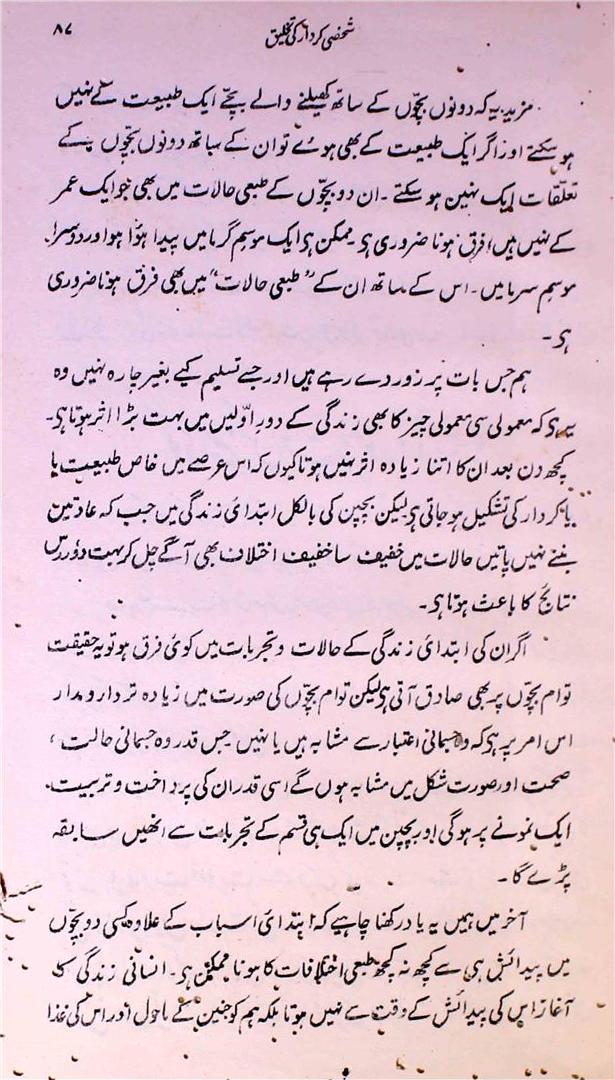 ۸۷
شخصی کردار کی تخلیق
مزید یہ کہ دونوں بچّوں کے ساتھ کھیلنے والے بچّے ایک طبیعت کے نہیں
ہو سکتے اور اگر ایک طبیعت کے بھی ہوے تو ان کے ساتھ دونوں بچّوں کے
تعلّقات ایک نہیں ہو سکتے ۔ ان دو بچّوں کے طبعی حالات میں بھی جو ایک عمر
کے نہیں ہیں فرق ہونا ضروری ہی ممکن ہی ایک موسِم گرما میں پیدا ہؤا ہو اور دوسرا
موسِم سرما میں ۔ اس کے ساتھ ان کے ”طبعی حالات“ میں بھی فرق ہونا ضروری
ہی ۔
ہم جس بات پر زور دے رہے ہیں اور جسے تسلیم کیے بغیر چارہ نہیں وہ
یہ ہی کہ معمولی سی معمولی چیز کا بھی زندگی کے دورِ اوّلیں میں بہت بڑا اثر ہوتا ہی ۔
کچھ دن بعد ان کا اتنا زیادہ اثر نہیں ہوتا کیوں کہ اس عرصے میں خاص طبیعت یا
یا کردار کی تشکیل ہو جاتی ہی لیکن بچپن کی بالکل ابتدائی زندگی میں جب کہ عادتیں
بننے نہیں پاتیں حالات میں خفیف سا خفیف اختلاف بھی آگے چل کر بہت دوٗررس
نتائج کا باعث ہوتا ہی ۔
اگر ان کی ابتدائی زندگی کے حالات و تجربات میں کوئی فرق ہو تو یہ حقیقت
توام بچّوں پر بھی صادق آتی ہی لیکن توام بچّوں کی صورت میں زیادہ تر دارومدار
اس امر پر ہی کہ وہ جسمانی اعتبار سے مشابہ ہیں یا نہیں جس قدر وہ جسمانی حالت ،
صحت اور صورت شکل میں مشابہ ہوں گے اسی قدر ان کی پرداخت و تربیت
ایک نمونے پر ہوگی اور بچپن میں ایک ہی قسم کے تجربات سے انھیں سابقہ
پڑے گا ۔
آخر میں ہمیں یہ یاد رکھنا چاہیے کہ ابتدائی اسباب کے علاوہ کسی دو بچّوں
میں پیدائش ہی سے کچھ نہ کچھ طبعی اختلافات کا ہونا ممکن ہی ۔ انسانی زندگی کا
آغاز اس کی پیدائش کے وقت سے نہیں ہوتا بلکہ ہم کو جنین کے ماحول اور اس کی غذا